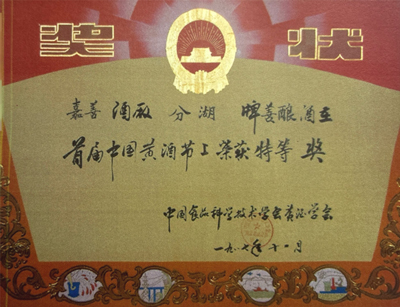 奖状
嘉善酒厰分湖牌善酿酒在
首届中国黄酒节上荣获特等奖
中国食品科学技术学会黄酒学会
一九八七年十一月